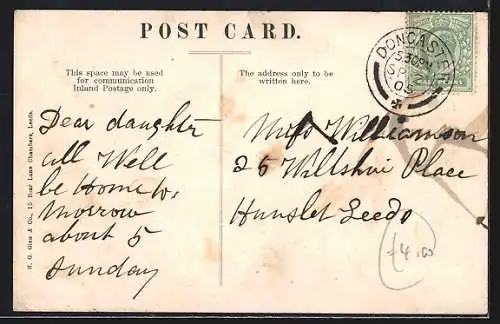 POST CARD.
This space may be used
for communication
Inland Postage only.
The address only to be
written here.
DONCASTER
3.30PM
SP
05
Dear daughter
all Well
be Home to-
Morrow
about 5
Sunday
Miss Williamson
26 Wiltshire Place
Hunslet Leeds
£4.00
H. G. Glen & Co., 15 Boar Lane Chambers, Leeds.